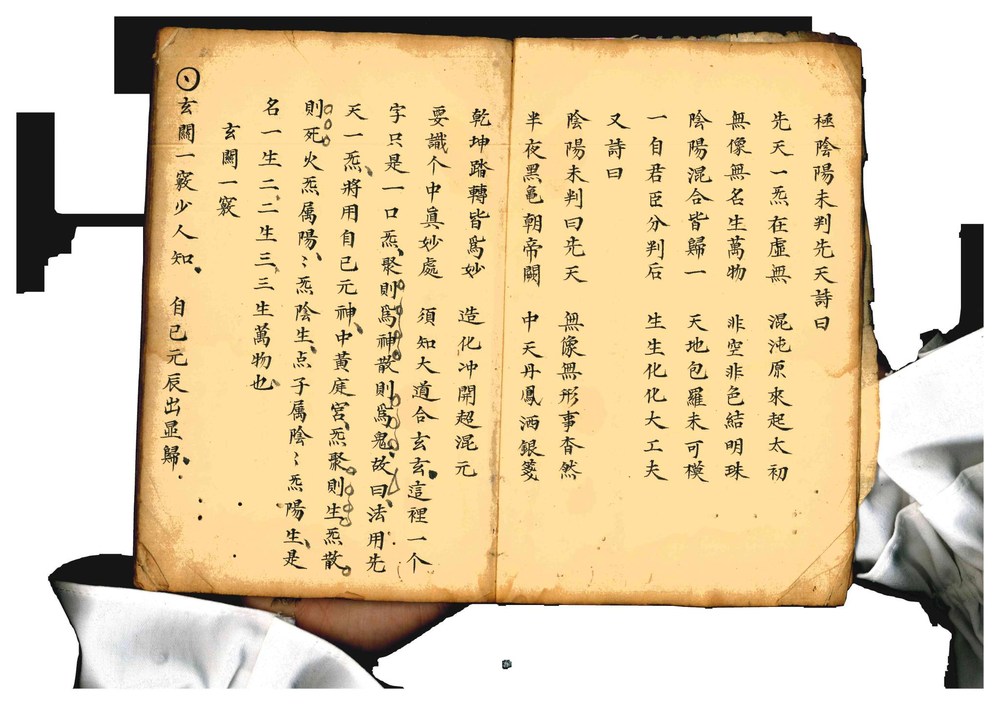 極陰陽未判先天詩曰
先天一炁在虛無 混沌原來起太初
無像無名生萬物 非空非色結明珠
陰陽混合皆歸一 天地包羅未可模
一自君臣分判后 生生化化大工夫
又詩曰
陰陽未判曰先天 無像無形事杳然
半夜黑龜朝帝闕 中天丹鳳洒銀箋
乾坤踏轉皆爲妙 造化冲開超混元
要識个中眞妙處 須知大道合玄玄這裡一个
字只是一口炁聚則爲神散則爲鬼故曰法用先
天一炁將用自己元神中黃庭宮炁聚則生炁散
則死火炁属陽〻炁陰生点子属陰〻炁陽生是
名一生二二生三三生萬物也
玄關一竅
玄關一竅少人知 自己元辰出显歸